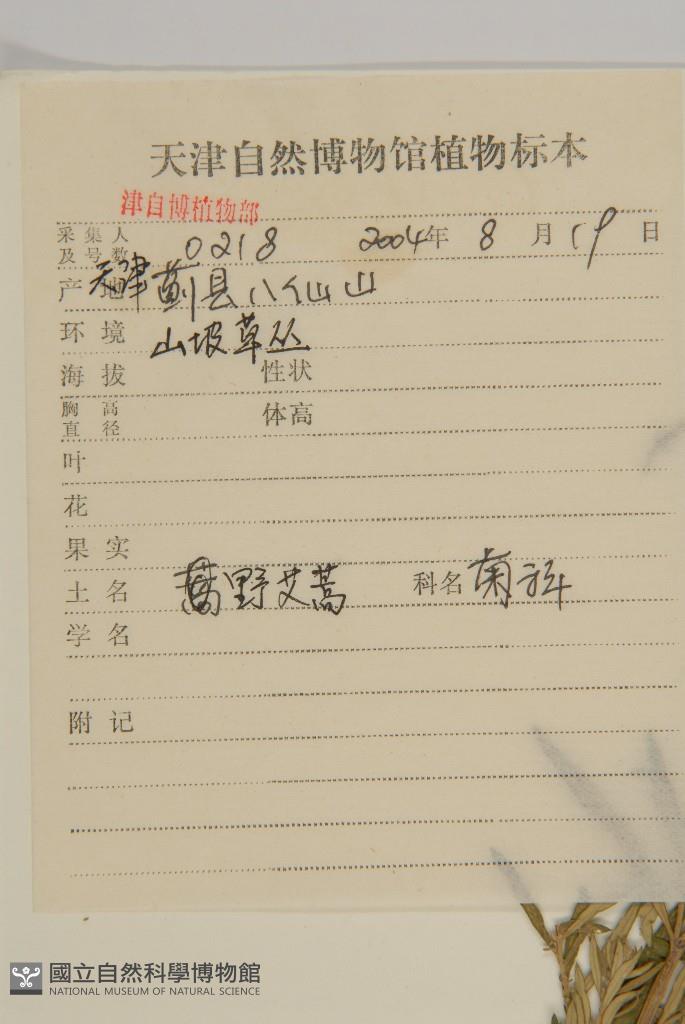 天津自然博物馆植物标本
津自博植物部
采集人
及号数 0218 2004年 8 月 19 日
产地 天津蓟县八仙山
环境 山坡草丛
海拔 性状
胸高
直径 体高
叶
花
果实
土名 野艾蒿 科名 菊科
学名
附记
國立自然科學博物館
NATIONAL MUSEUM OF NATURAL SCIENCE